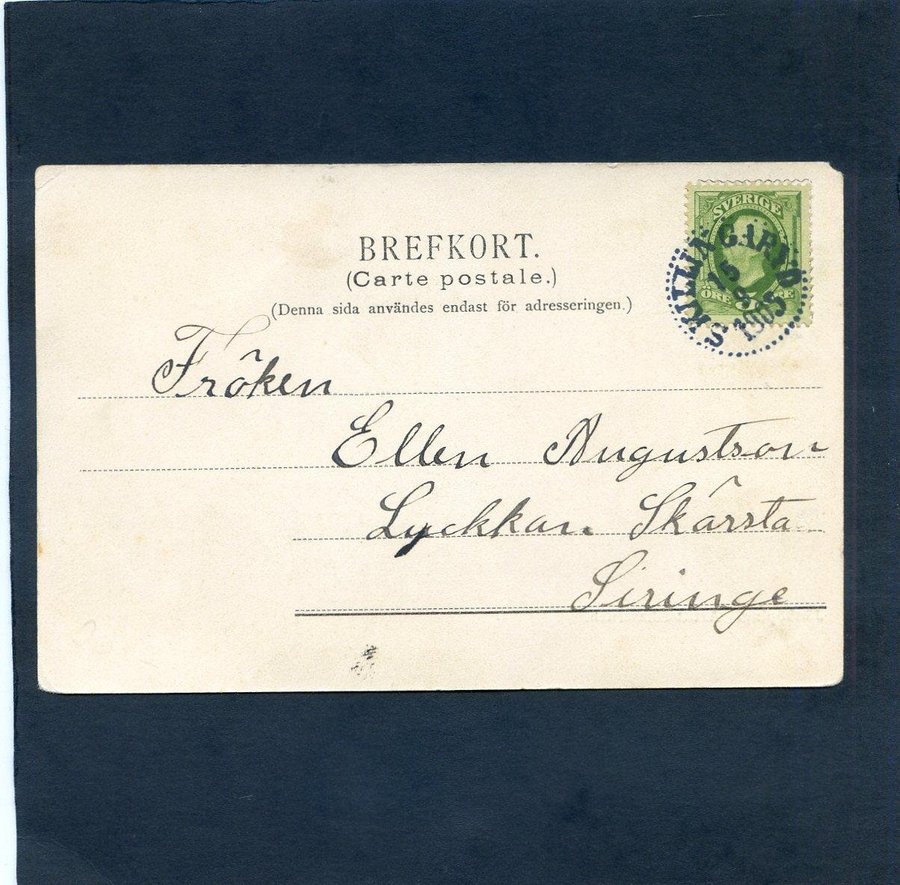 BREFKORT.
(Carte postale.)
(Denna sida användes endast för adresseringen.)
SVERIGE
ÖRE 5 ÖRE
SKILLINGARYD
1905
Fröken
Ellen Augustson
Lyckkan Skärsta
Siringe